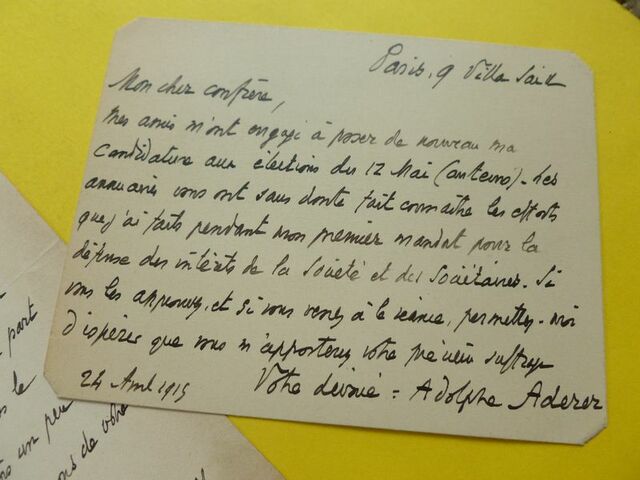 Paris, 9 Villa Said
Mon cher confrère,
Mes amis m'ont engagé à poser de nouveau ma
candidature aux élections du 12 Mai (auteurs). Les
annuaires vous ont sans doute fait connaître les efforts
que j'ai faits pendant mon premier mandat pour la
défense des intérêts de la Société et des Sociétaires. Si
vous les approuvez, et si vous venez à la séance, permettez-moi
d'espérer que vous m'apporterez votre précieux suffrage
24 Avril 1915 Votre dévoué = Adolphe Aderer
part
le
un peu
de votre